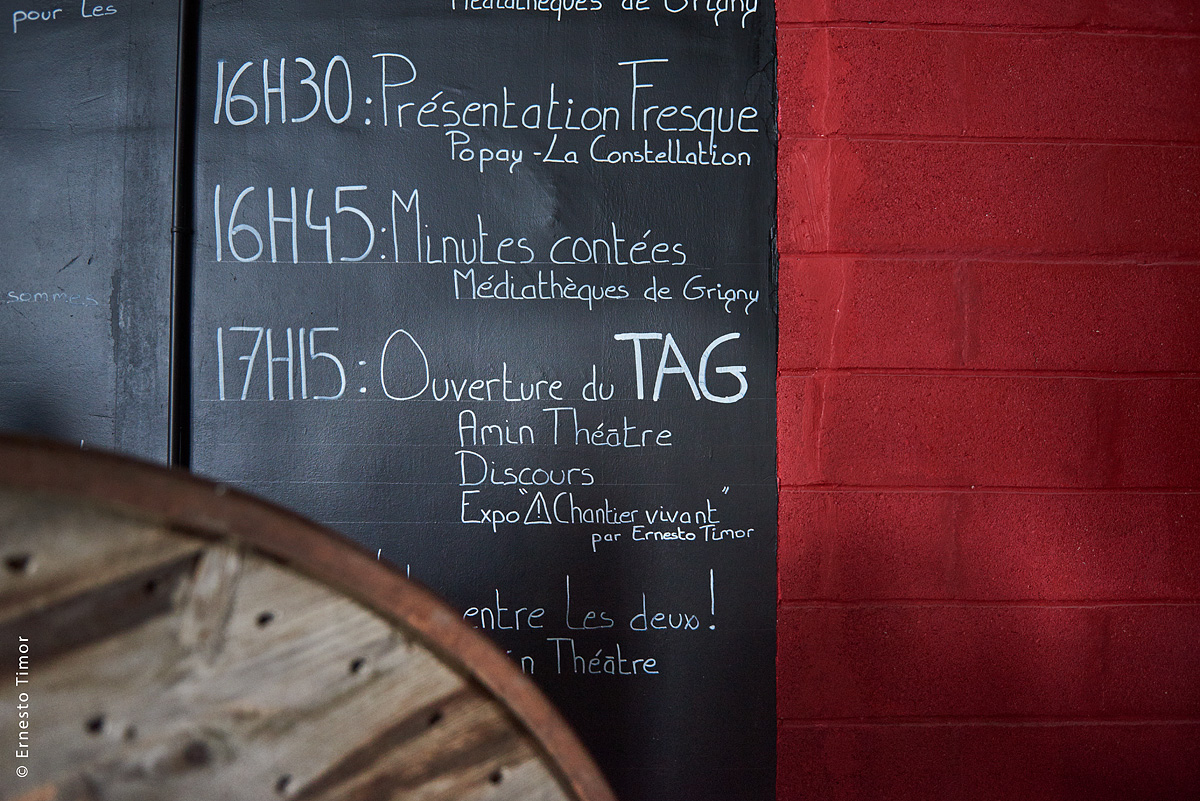 pour les
sommes
Médiathèques de Grigny
16H30 : Présentation Fresque
Popay - La Constellation
16H45 : Minutes contées
Médiathèques de Grigny
17H15 : Ouverture du TAG
Amin Théâtre
Discours
Expo "⚠ Chantier vivant"
par Ernesto Timor
entre les deux !
in Théâtre
© Ernesto Timor